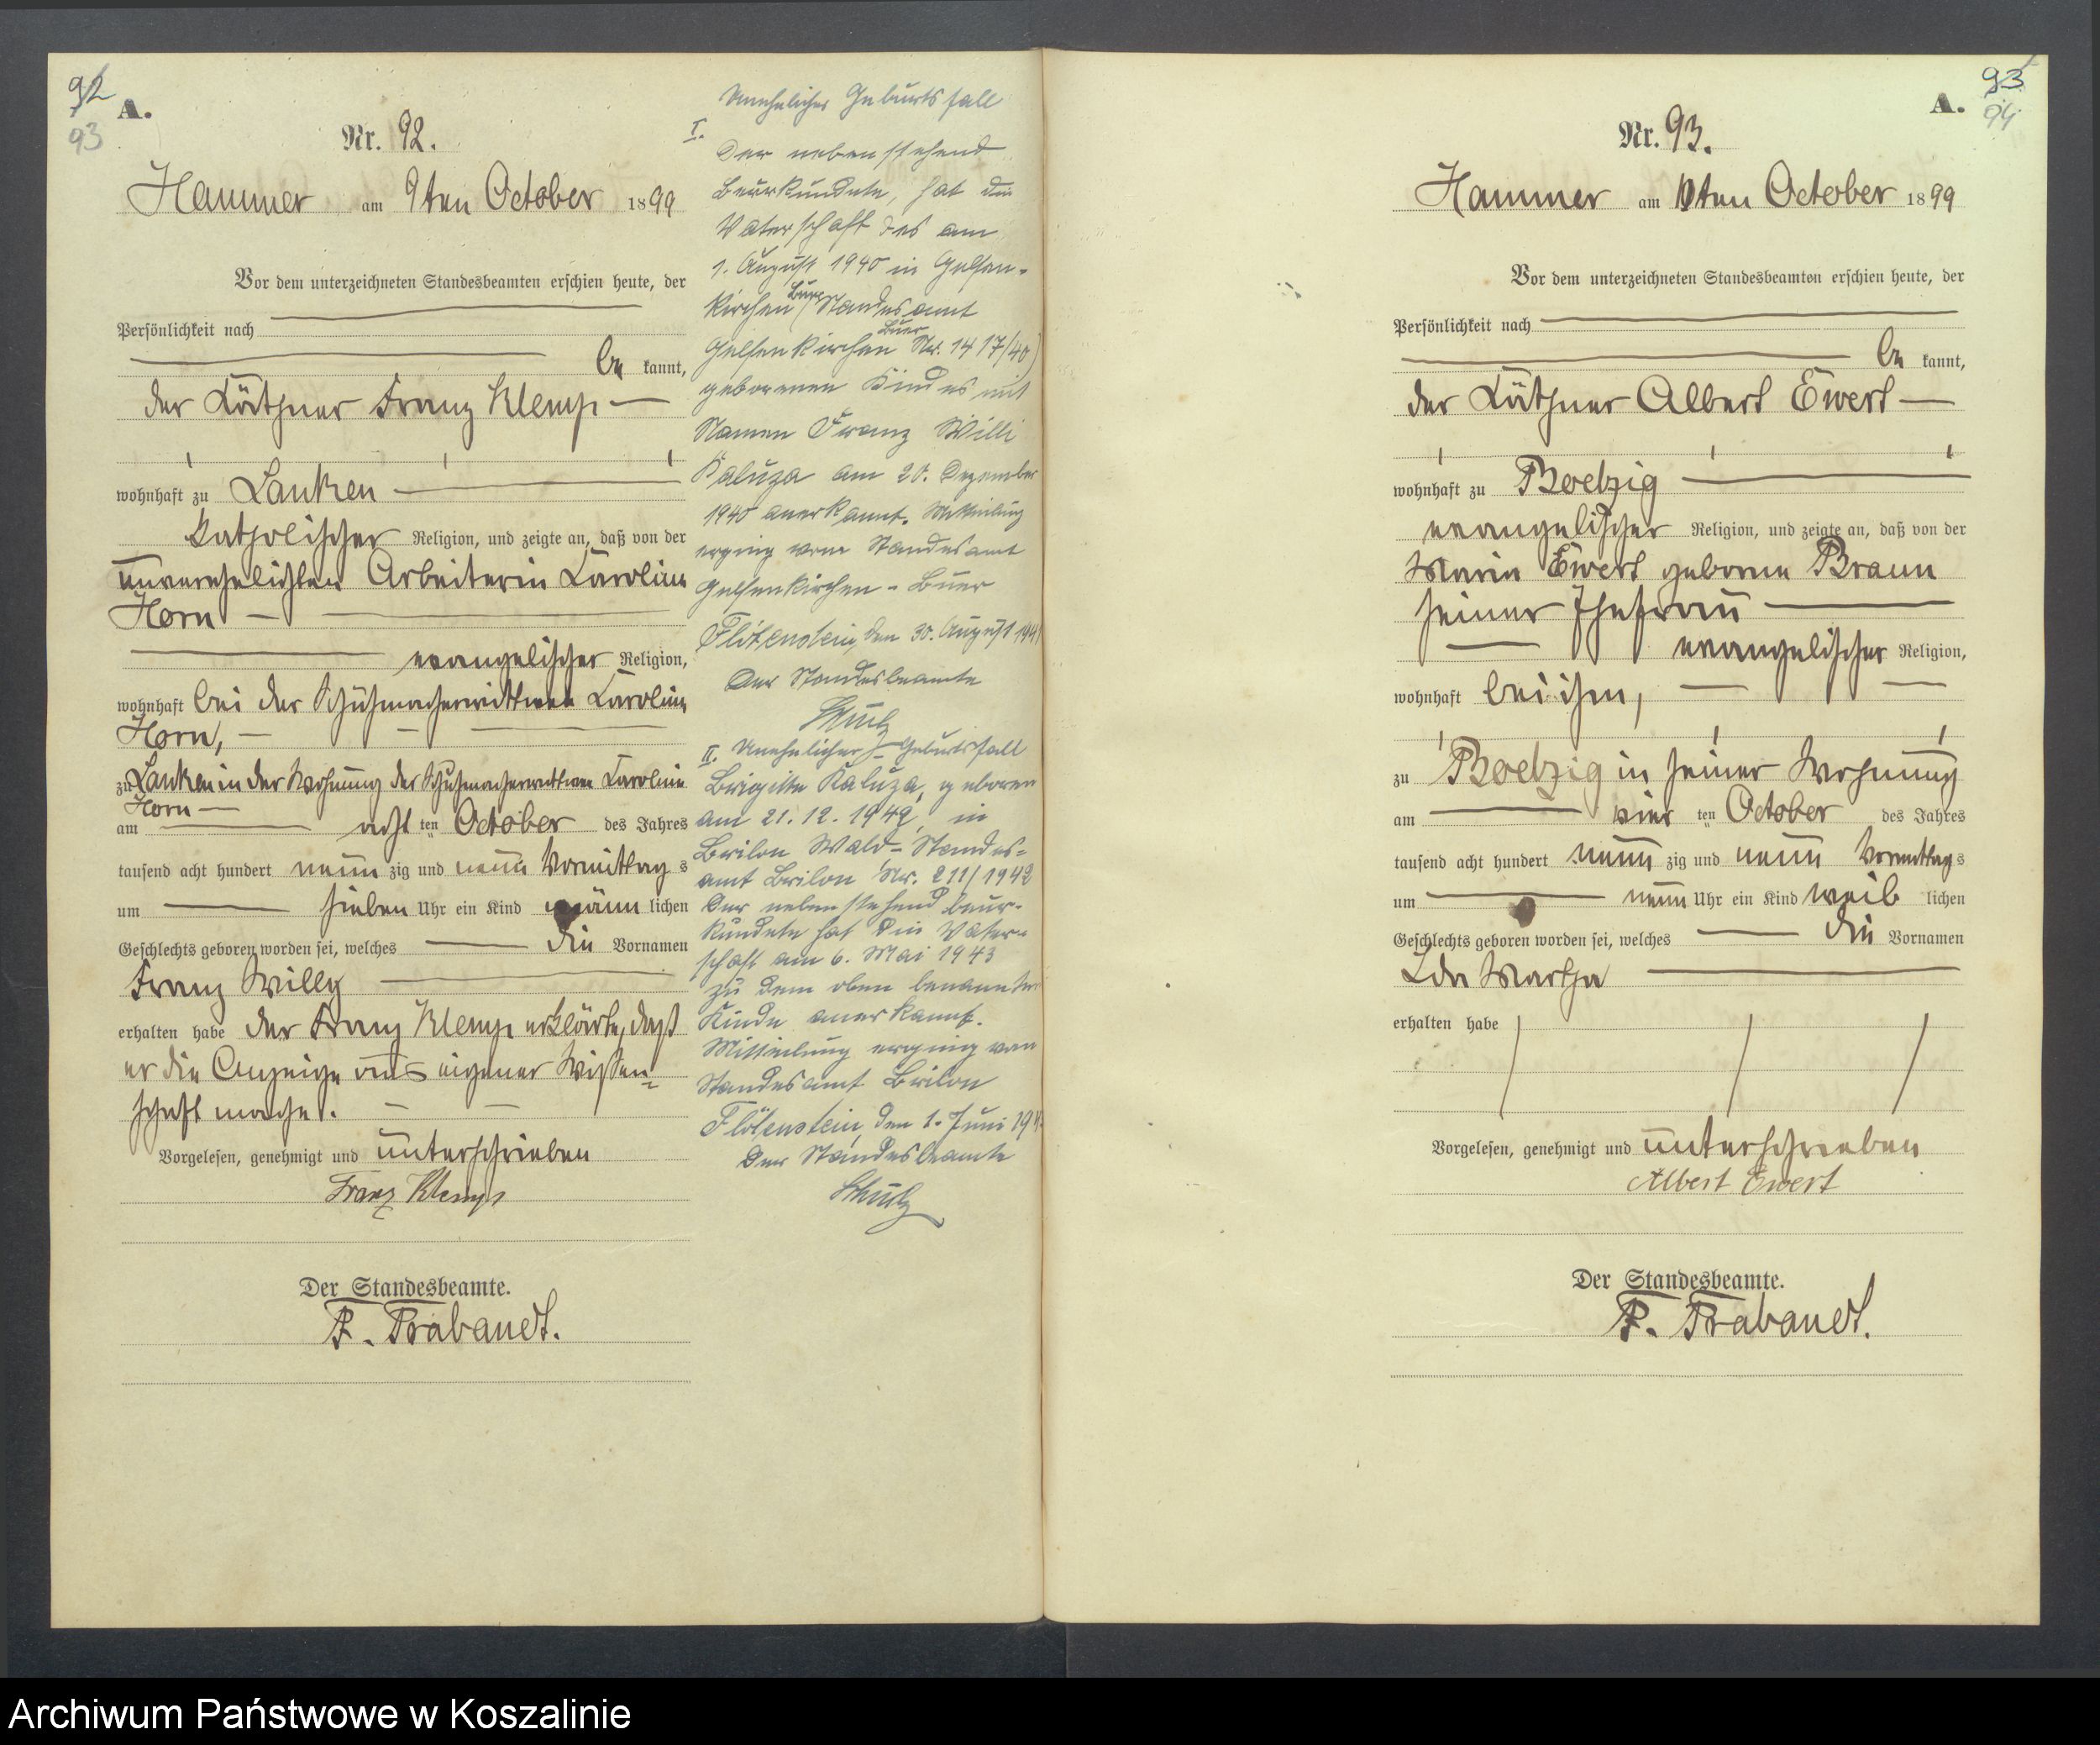 92
93
A.
Nr. 92.
Hammer am 9ten October 1899
Vor dem unterzeichneten Standesbeamten erschien heute, der
Persönlichkeit nach
be kannt,
der Käthner Franz Klemp
wohnhaft zu Lanken
katholischer Religion, und zeigte an, daß von der
unverehelichten Arbeiterin Karoline
Horn
evangelischer Religion,
wohnhaft bei der Schuhmacherwittwe Karoline
Horn,
zu Lanken in der Wohnung der Schuhmacherwittwe Karoline
Horn
am acht ten October des Jahres
tausend acht hundert neun zig und neun Vormittag s
um sieben Uhr ein Kind männ lichen
Geschlechts geboren worden sei, welches die Vornamen
Franz Willy
erhalten habe der Franz Klemp erklärte, daß
er die Anzeige aus eigener Wissen-
schaft mache.
Vorgelesen, genehmigt und unterschrieben
Franz Klemp
Der Standesbeamte.
F. Brabandt.
Unehelicher Geburtsfall
I.
Der nebenstehend
Beurkundete, hat die
Vaterschaft des am
1. August 1940 in Gelsen-
kirchen Buer (Standesamt
Gelsenkirchen Buer Nr. 1417/40)
geborenen Kindes mit
Namen Franz Willi
Kaluza am 20. Dezember
1940 anerkannt. Mitteilung
erging vom Standesamt
Gelsenkirchen - Buer
Flötenstein, den 30. August 1941
Der Standesbeamte
Schulz
II. Unehelicher Geburtsfall
Brigitte Kaluza, geboren
am 21. 12. 1942, in
Brilon Wald - Standes-
amt Brilon Nr. 211/1942
Der nebenstehend beur-
kundete hat die Vater-
schaft am 6. Mai 1943
zu dem oben benannten
Kinde anerkannt.
Mitteilung erging vom
Standesamt Brilon
Flötenstein, den 1. Juni 194
Der Standesbeamte
Schulz
93
94
A.
Nr. 93.
Hammer am 10ten October 1899
Vor dem unterzeichneten Standesbeamten erschien heute, der
Persönlichkeit nach
be kannt,
der Käthner Albert Ewert
wohnhaft zu Boelzig
evangelischer Religion, und zeigte an, daß von der
Maria Ewert geborne Braun
seiner Ehefrau
evangelischer Religion,
wohnhaft bei ihm,
zu Boelzig in seiner Wohnung
am vier ten October des Jahres
tausend acht hundert neun zig und neun Vormittag s
um neun Uhr ein Kind weib lichen
Geschlechts geboren worden sei, welches die Vornamen
Ida Martha
erhalten habe
Vorgelesen, genehmigt und unterschrieben
Albert Ewert
Der Standesbeamte.
F. Brabandt.
Archiwum Państwowe w Koszalinie